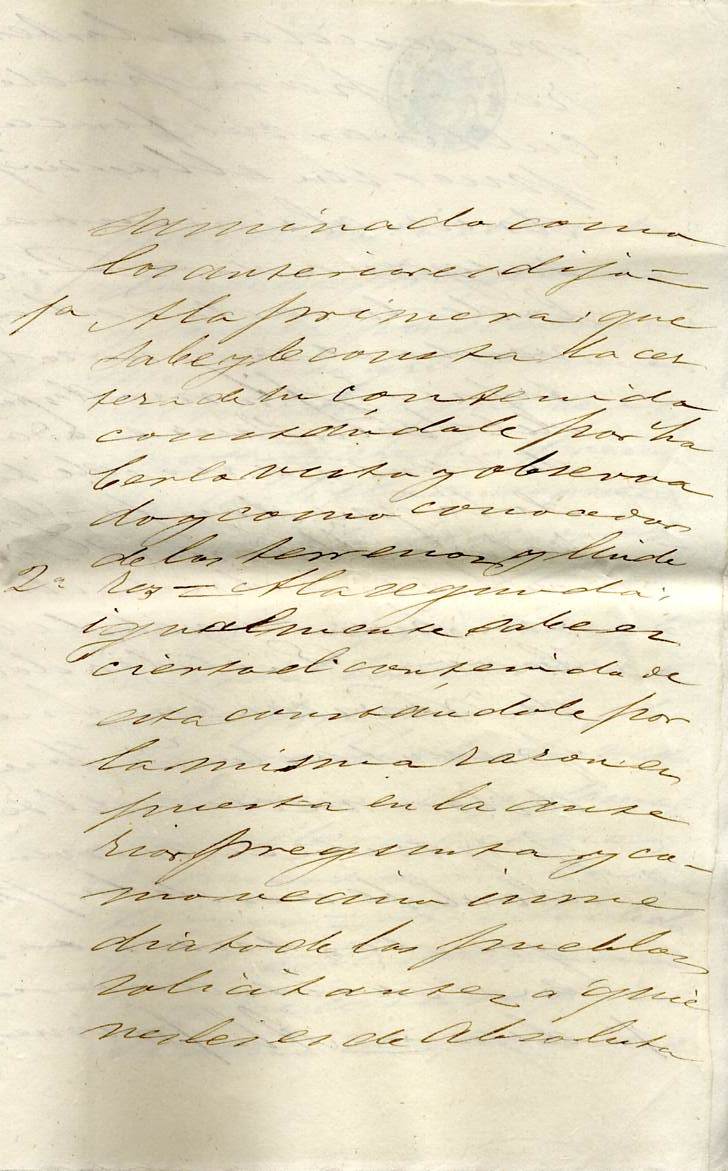 saminado como
los anteriores dijo=
1a A la primera: que
sabe y le consta la cer
tera de su contenido
constándole por ha
berlo visto y observa
do y como conocedor
de los terrenos y linde
2a ros = A la segunda:
igualmente sabe es
cierto el contenido de
esta constándole por
la misma razon es
puesta en la ante
rior pregunta y co-
mo vecino inme
diato de los pueblos
solicitantes a quie
nes les es de absoluta